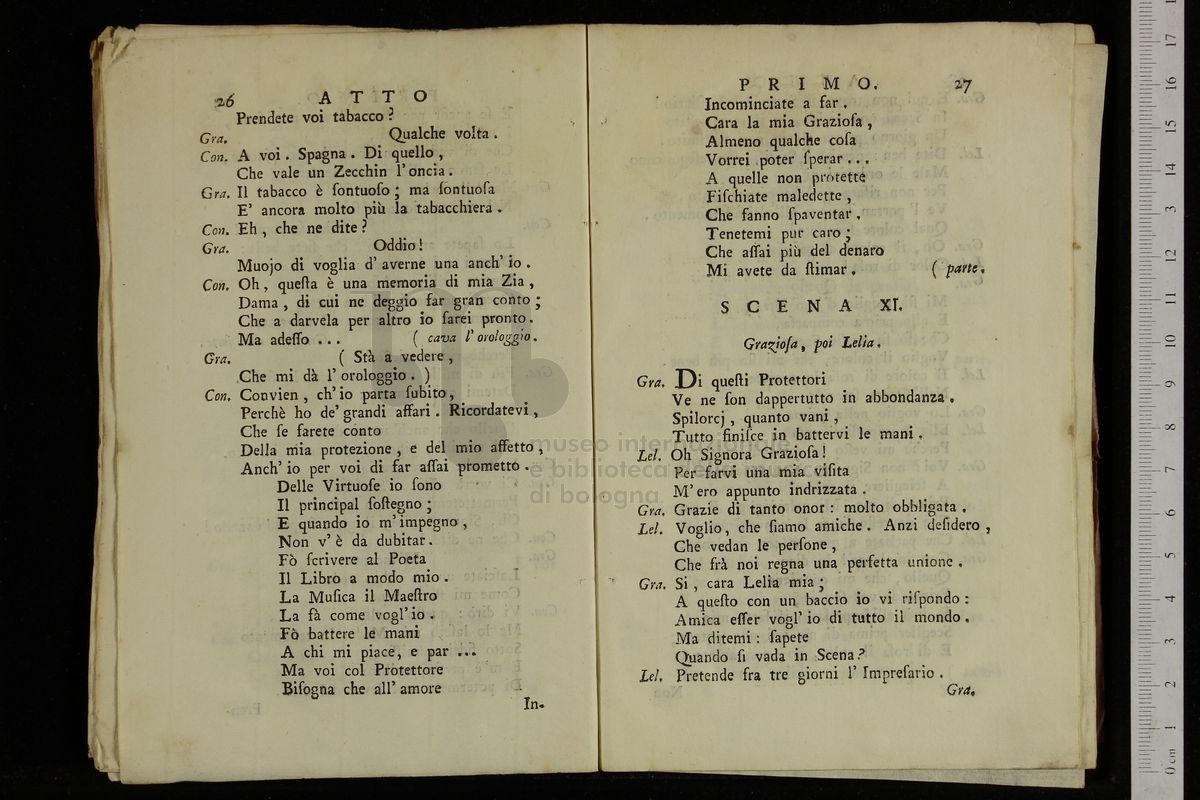 26 ATTO
Prendete voi tabacco?
Gra. Qualche volta.
Con. A voi. Spagna. Di quello,
Che vale un Zecchin l'oncia.
Gra. Il tabacco è ſontuoſo; ma ſontuoſa
E' ancora molto più la tabacchiera.
Con. Eh, che ne dite?
Gra. Oddio!
Muojo di voglia d'averne una anch'io.
Con. Oh, queſta è una memoria di mia Zia,
Dama, di cui ne deggio far gran conto;
Che a darvela per altro io ſarei pronto.
Ma adeſſo ... ( cava l'orologgio.
Gra. ( Stà a vedere,
Che mi dà l'orologgio. )
Con. Convien, ch'io parta ſubito,
Perchè ho de'grandi affari. Ricordatevi,
Che ſe farete conto
Della mia protezione, e del mio affetto,
Anch'io per voi di far aſſai prometto.
Delle Virtuoſe io ſono
Il principal ſoſtegno;
E quando io m'impegno,
Non v'è da dubitar.
Fò ſcrivere al Poeta
Il Libro a modo mio.
La Muſica il Maeſtro
La fà come vogl'io.
Fò battere le mani
A chi mi piace, e par ...
Ma voi col Protettore
Biſogna che all'amore
In-
PRIMO. 27
Incominciate a far.
Cara la mia Grazioſa,
Almeno qualche coſa
Vorrei poter ſperar...
A quelle non protette
Fiſchiate maledette,
Che fanno ſpaventar.
Tenetemi pur caro;
Che aſſai più del denaro
Mi avete da ſtimar. ( parte.
SCENA XI.
Grazioſa, poi Lelia.
Gra. Di queſti Protettori
Ve ne ſon dappertutto in abbondanza.
Spilorcj, quanto vani,
Tutto finiſce in battervi le mani.
Lel. Oh Signora Grazioſa!
Per farvi una mia viſita
M'ero appunto indrizzata.
Gra. Grazie di tanto onor: molto obbligata.
Lel. Voglio, che ſiamo amiche. Anzi deſidero,
Che vedan le perſone,
Che frà noi regna una perfetta unione.
Gra. Si, cara Lelia mia;
A queſto con un baccio io vi riſpondo:
Amica eſſer vogl'io di tutto il mondo.
Ma ditemi: ſapete
Quando ſi vada in Scena?
Lel. Pretende fra tre giorni l'Impreſario.
Gra.
museo internazionale
e biblioteca della musica
di bologna
0 cm 1 2 3 4 5 6 7 8 9 10 11 12 13 14 15 16 17